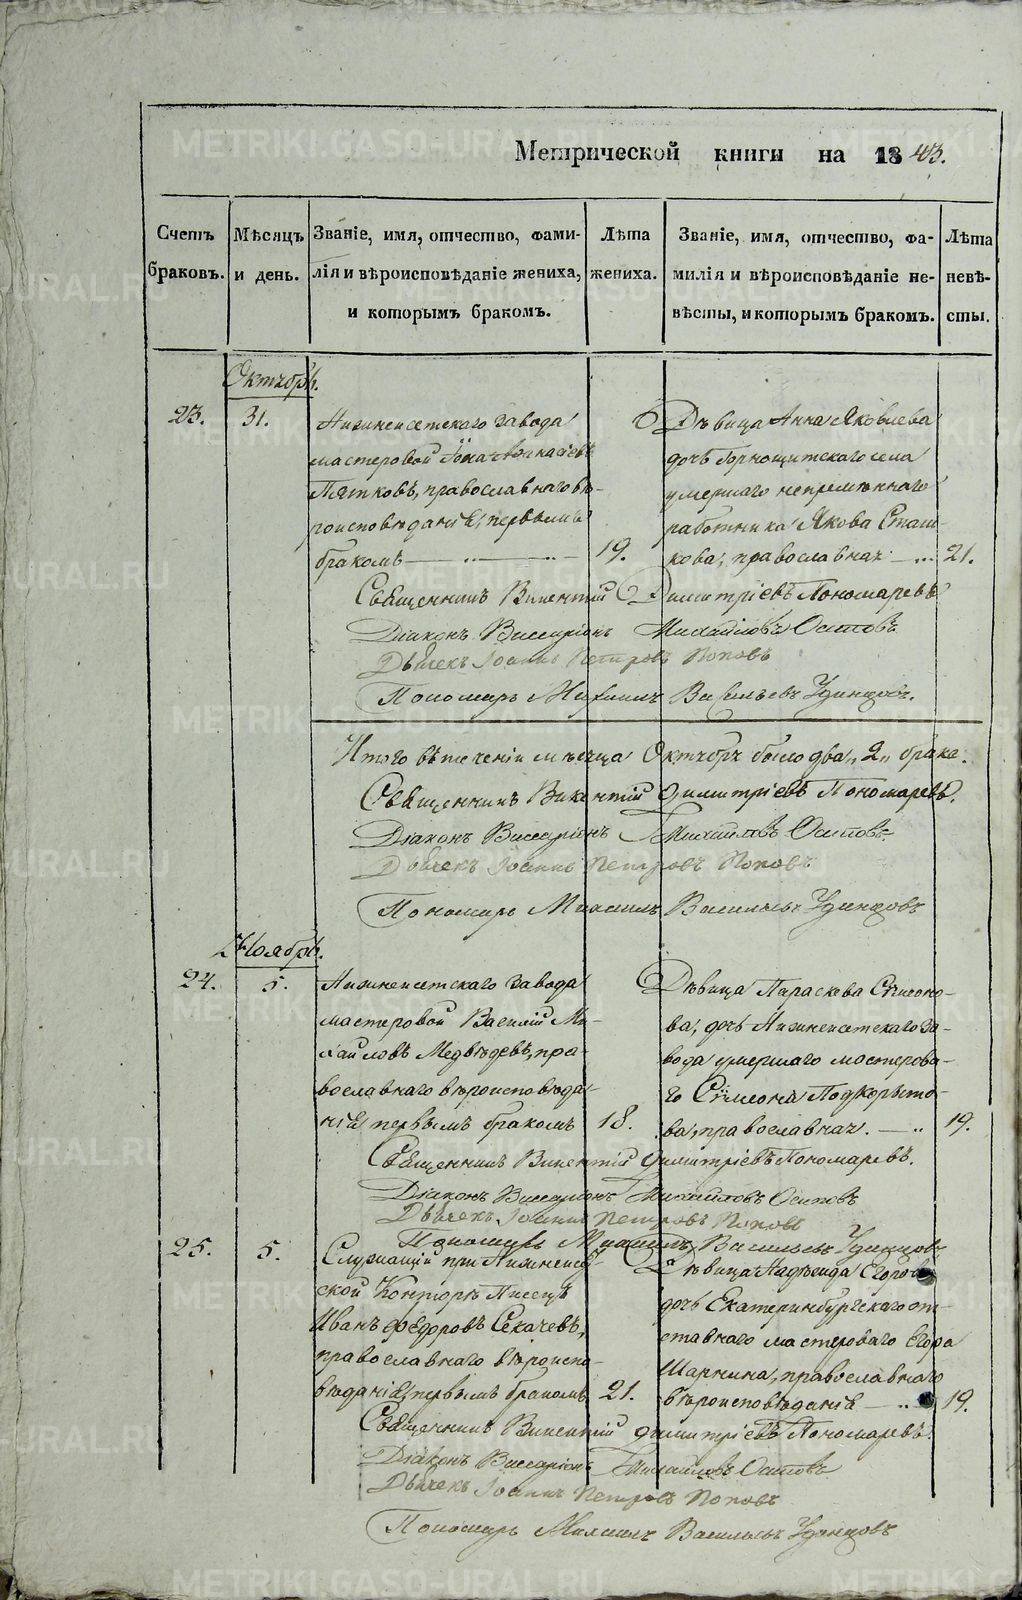 Метрической книги на 1843.
Счетъ браковъ.
Мѣсяцъ и день.
Званіе, имя, отчество, фами-
лія и вѣроисповѣданіе жениха,
и которымъ бракомъ.
Лѣта жениха.
Званіе, имя, отчество, фа-
милія и вѣроисповѣданіе не-
вѣсты, и которымъ бракомъ.
Лѣта невѣ-
сты.
Октябрь.
23.
31.
Нижнеисетскаго завода
мастеровой Іона
Пятковъ, православнаго вѣ-
роисповѣданія, первымъ
бракомъ
19.
Дѣвица Анна Яковлева
дочь Горнощитскаго села
умершаго непремѣннаго
работника Якова Сташ-
кова, православная
21.
Священникъ Викентій Димитріевъ Пономаревъ
Діаконъ Виссаріонъ Михайловъ Осиповъ
Дьячекъ Іоаннъ Петровъ Поповъ
Пономарь Михаилъ Васильевъ Удинцовъ.
Итого въ теченіи мѣсяца Октября было два „2„ брака.
Священникъ Викентій Димитріевъ Пономаревъ.
Діаконъ Виссаріонъ Михайловъ Осиповъ
Дьячекъ Іоаннъ Петровъ Поповъ
Пономарь Михаилъ Васильевъ Удинцовъ
Ноябрь.
24.
5.
Нижнеисетскаго завода
мастеровой Василій Ми-
хайловъ Медвѣдевъ, пра-
вославнаго вѣроисповѣда-
нія, первымъ бракомъ
18.
Дѣвица Параскева Сѵмеоно-
ва, дочь Нижнеисетскаго за-
вода умершаго мастерова-
го Сѵмеона Подкорыто-
ва, православная.
19.
Священникъ Викентій Димитріевъ Пономаревъ.
Діаконъ Виссаріонъ Михайловъ Осиповъ
Дьячекъ Іоаннъ Петровъ Поповъ
Пономарь Михаилъ Васильевъ Удинцовъ
25.
5.
Служащій при Нижнеисет-
ской Конторѣ Писецъ
Иванъ Ѳедоровъ Секачевъ,
православнаго вѣроиспо-
вѣданія, первымъ бракомъ
21.
Дѣвица Надѣжда Егорова
дочь Екатеринбургскаго от-
ставнаго мастероваго Егора
Шарнина, православнаго
вѣроисповѣданія
19.
Священникъ Викентій Димитріевъ Пономаревъ.
Діаконъ Виссаріонъ Михайловъ Осиповъ
Дьячекъ Іоаннъ Петровъ Поповъ
Пономарь Михаилъ Васильевъ Удинцовъ
METRIKI.GASO-URAL.RU